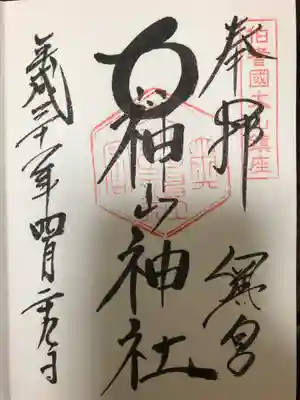 伯耆國大山鎮座
奉拝
奥宮
大神山神社
平成三十一年四月二十九日